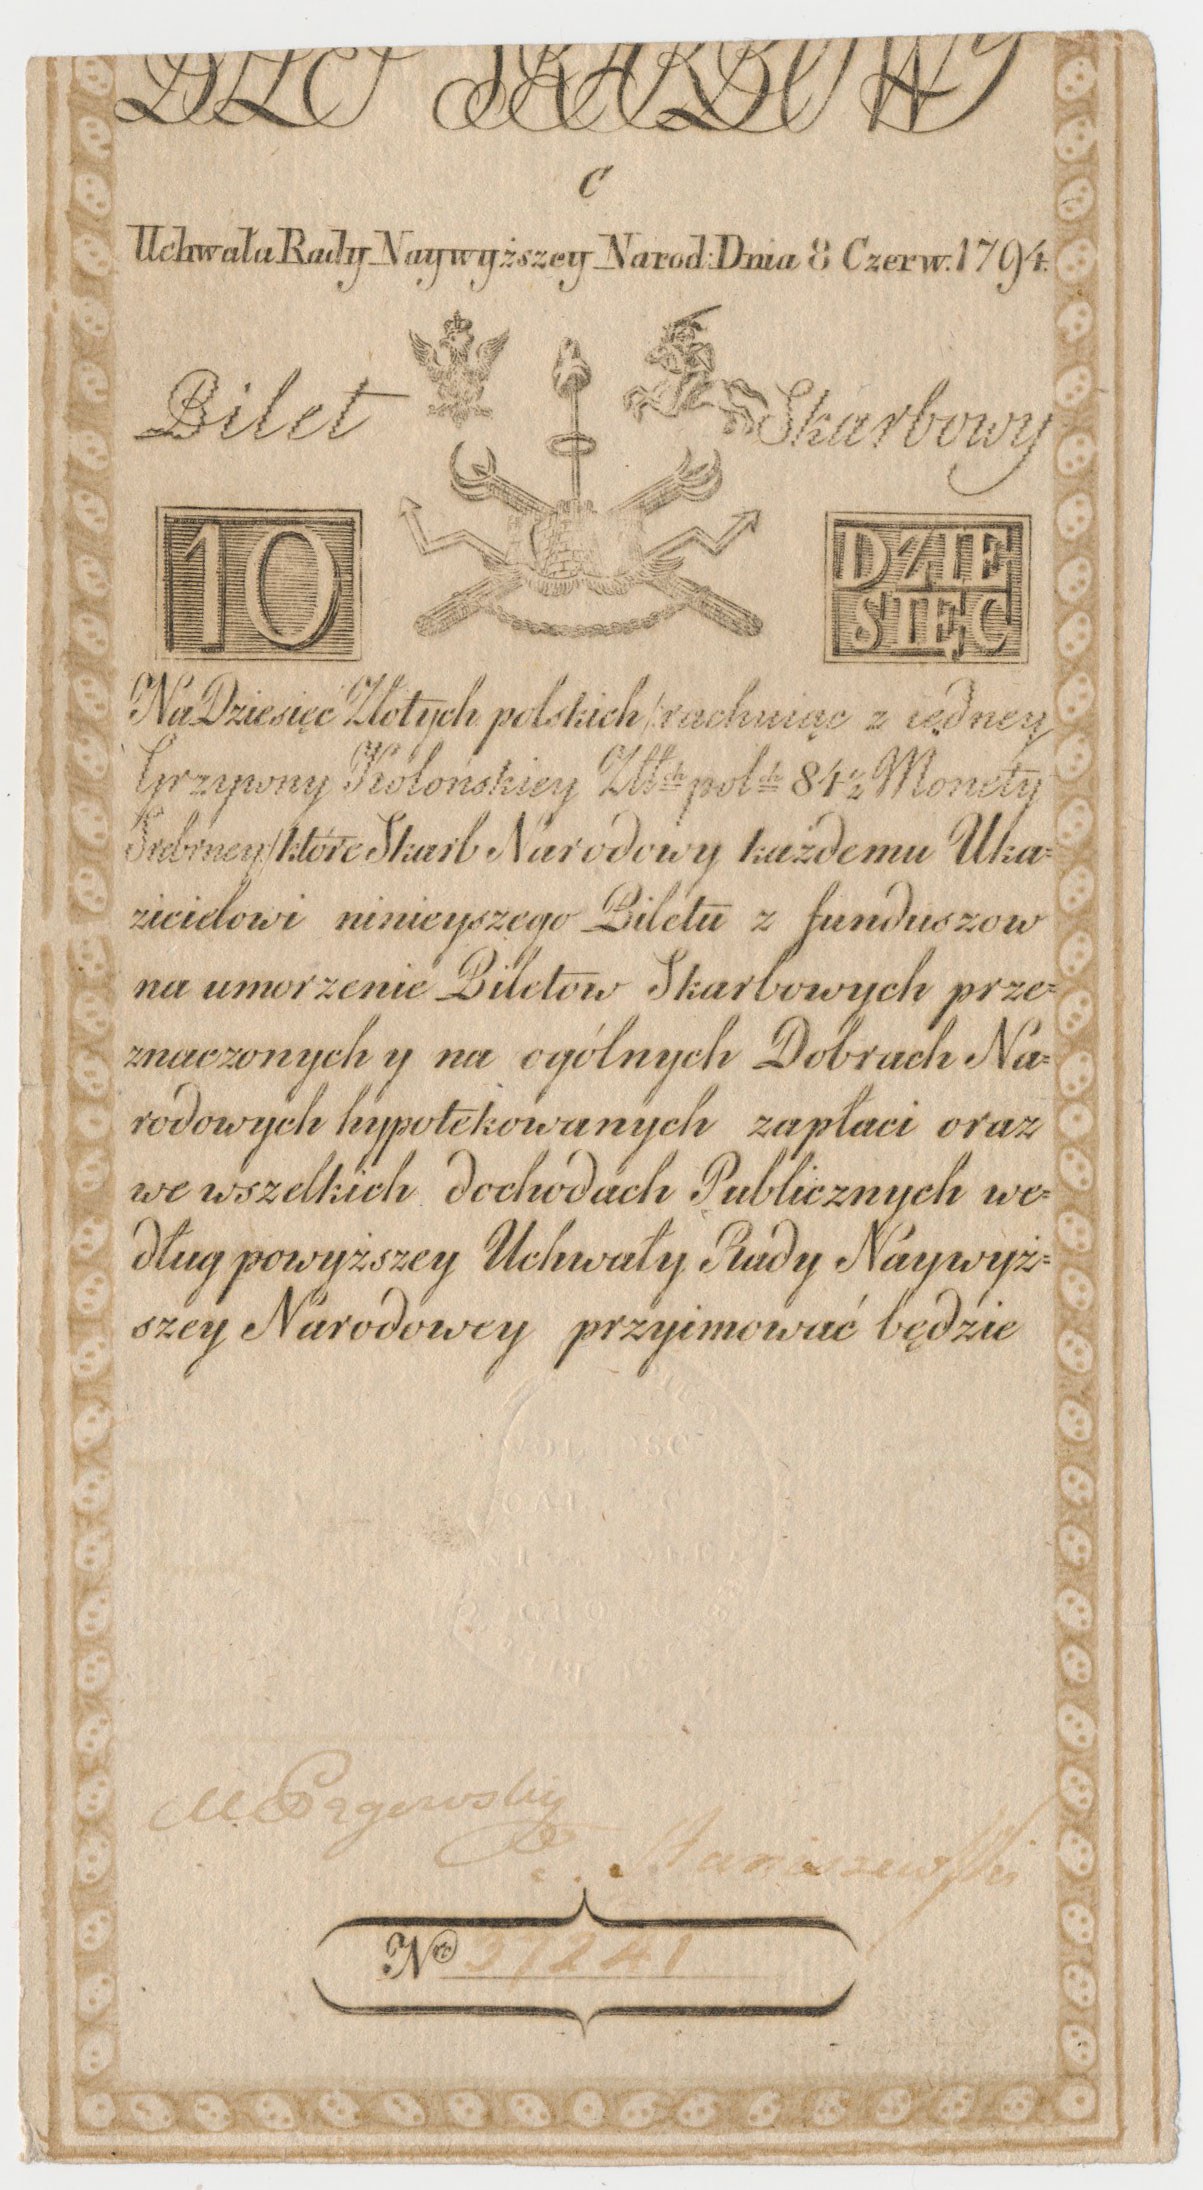 BILET SKARBOWY
C
Uchwała Rady Naywyższey Narod: Dnia 8 Czerw. 1794.
Bilet Skarbowy
10 DZIE
SIĘC
Na Dziesięć Złotych polskich /rachuiąc z iędney
Grzywny Kolońskiey Złł:ch pol:ch 84½ Monety
Srebrney/ które Skarb Narodowy każdemu Uka=
zicielowi ninieyszego Biletu z funduszow
na umorzenie Biletow Skarbowych prze=
znaczonych y na ogólnych Dobrach Na=
rodowych hypotekowanych zapłaci oraz
we wszelkich dochodach Publicznych we=
dług powyższey Uchwały Rady Naywyż=
szey Narodowey przyimować będzie
M. Pągowski
Staniszewski
Nro 37241